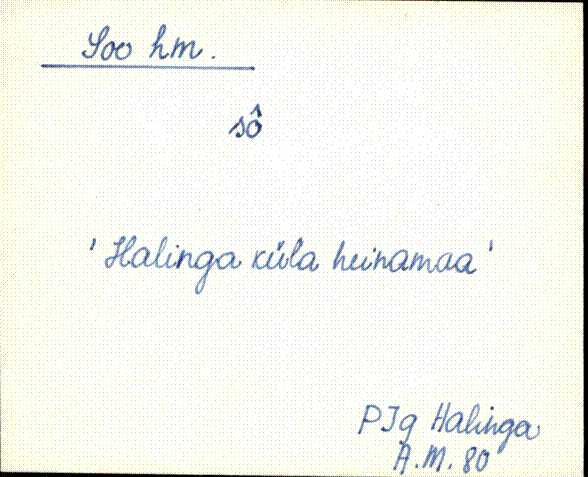 Soo hm.
sô
'Halinga küla heinamaa'
PJg Halinga
A.M. 80